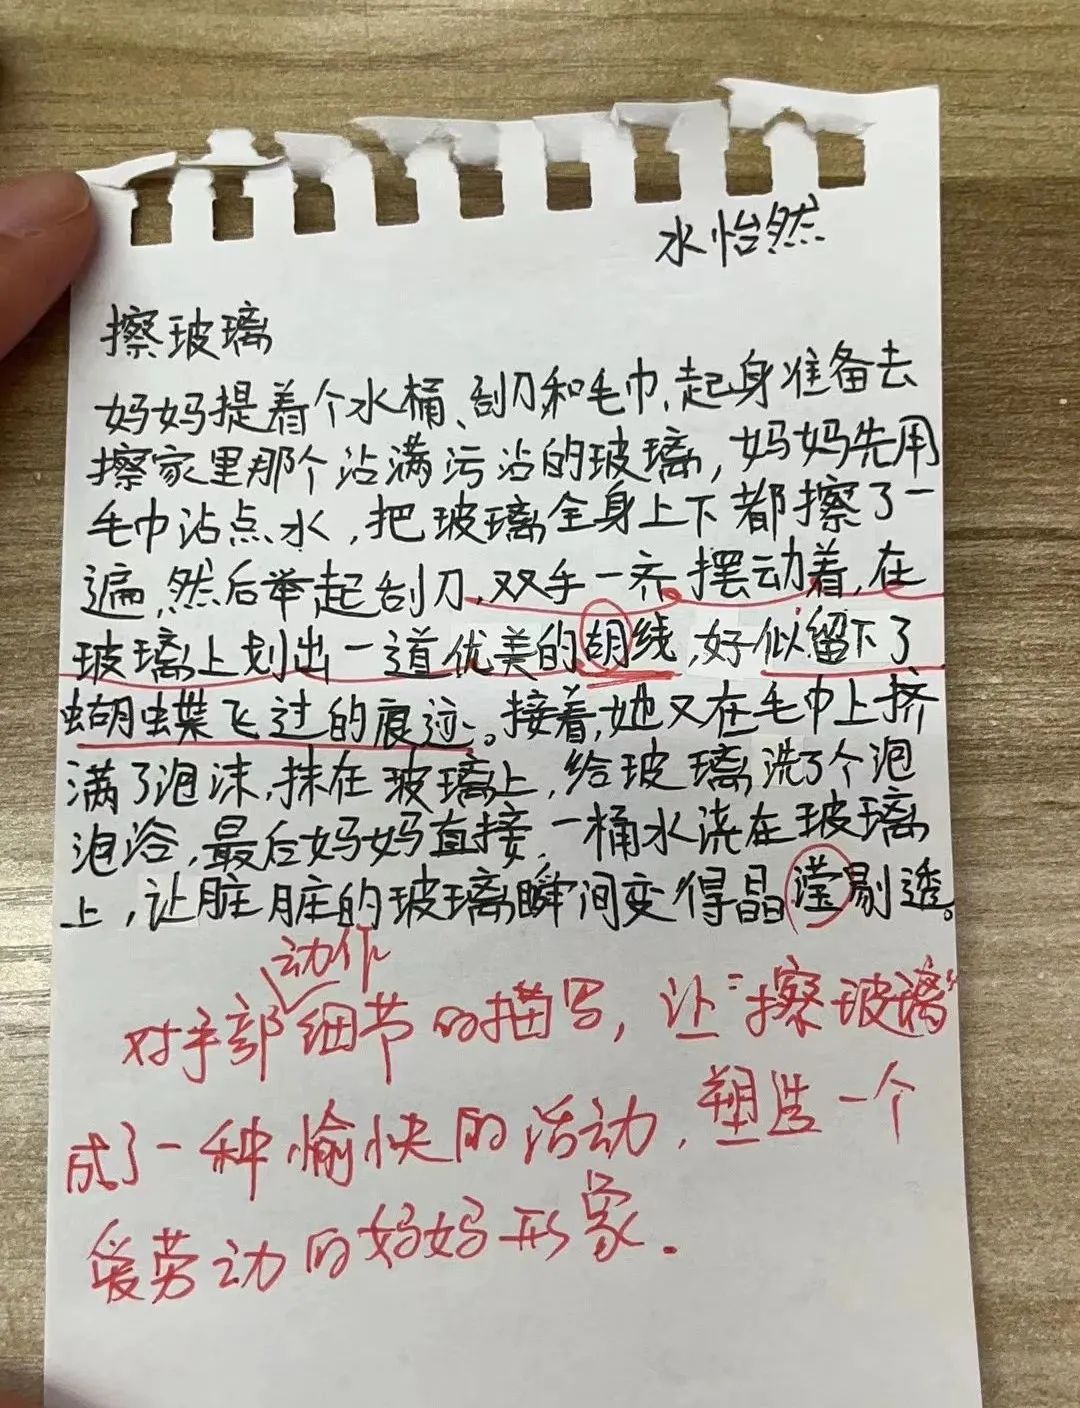 水怡然
擦玻璃
妈妈提着个水桶、刮刀和毛巾,起身准备去
擦家里那个沾满污沾的玻璃,妈妈先用
毛巾沾点水,把玻璃全身上下都擦了一
遍,然后举起刮刀,双手一齐摆动着,在
玻璃上划出一道优美的胡线,好似留下了
蝴蝶飞过的痕迹。接着,她又在毛巾上挤
满了泡沫,抹在玻璃上,给玻璃洗了个泡
泡浴,最后妈妈直接一桶水浇在玻璃
上,让脏脏的玻璃瞬间变得晶滢剔透。
动作
对手部细节的描写,让"擦玻璃"
成了一种愉快的活动,塑造一个
爱劳动的妈妈形象.